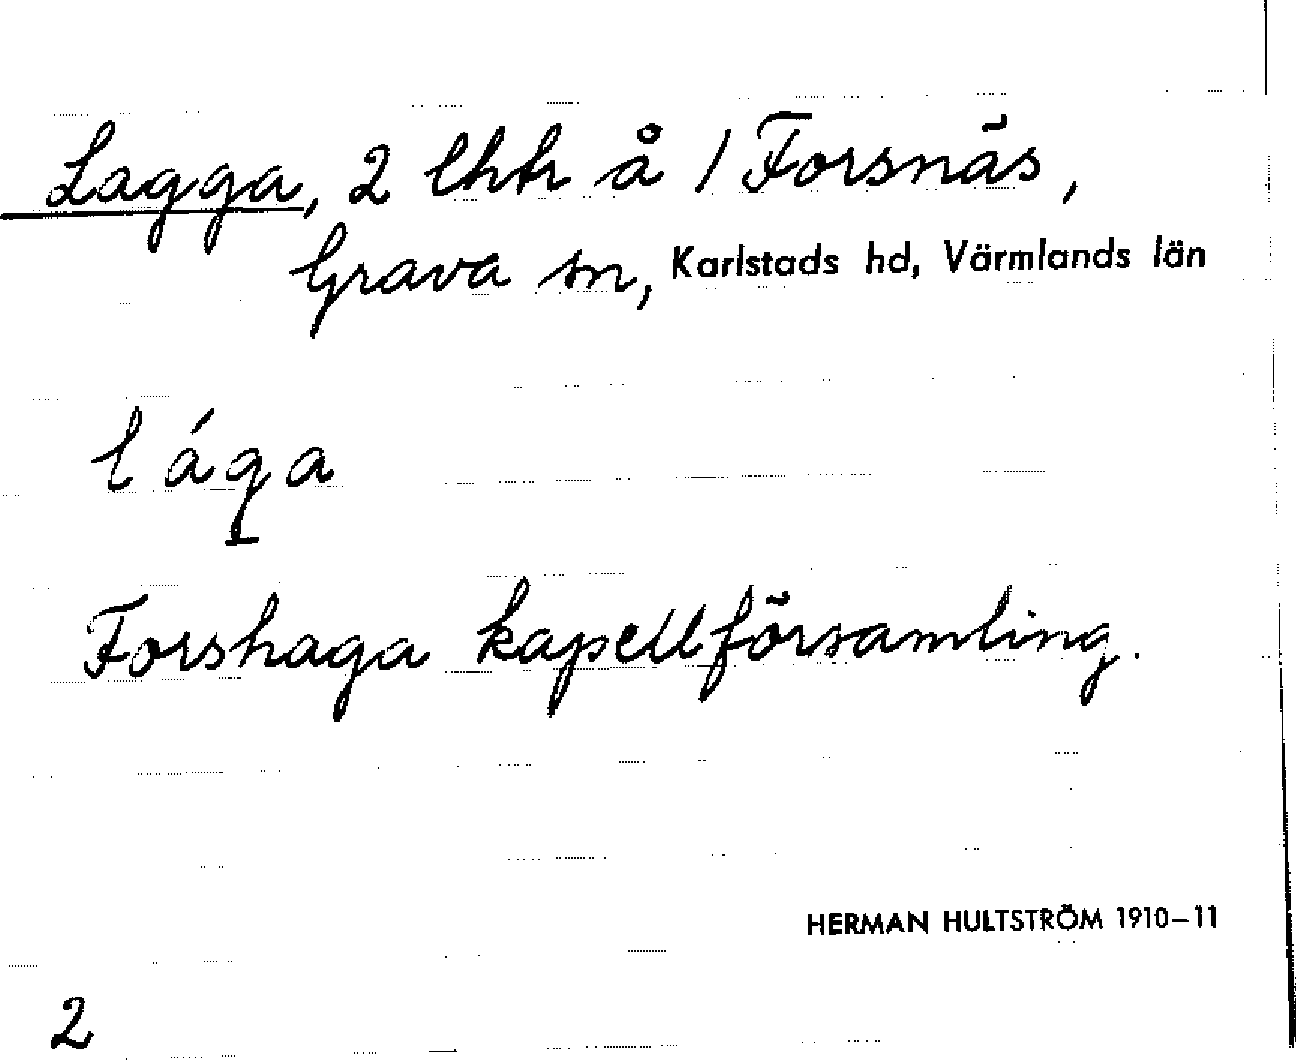 Lagga, 2 lhtr å 1 Forsnäs,
Grava sn, Karlstads hd, Värmlands län
lága
Forshaga kapellförsamling.
HERMAN HULTSTRÖM 1910–11
2